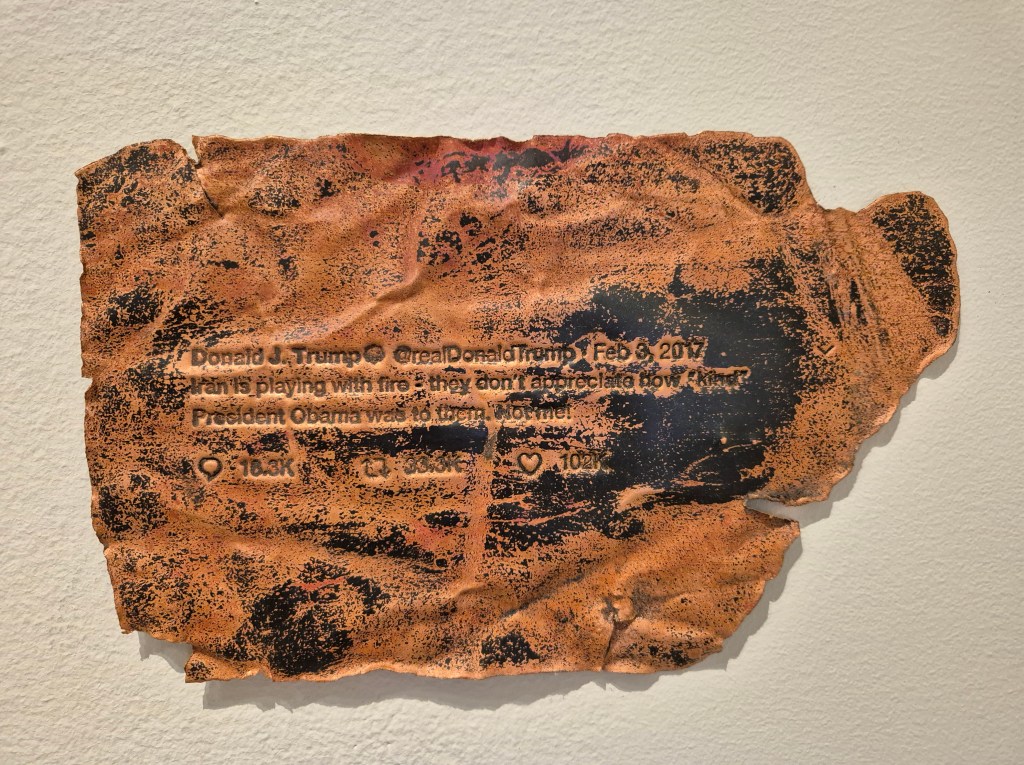 Donald J. Trump @realDonaldTrump · Feb 3, 2017
Iran is playing with fire - they don't appreciate how "kind"
President Obama was to them. Not me!
18.3K 33.3K 102K